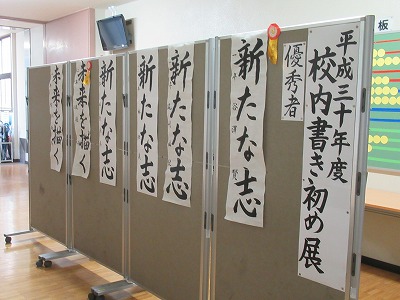 平成三十年度
校内書き初め展
優秀者
新たな志
新たな志
新たな志
新たな志
未来を描く
未来を描く
板